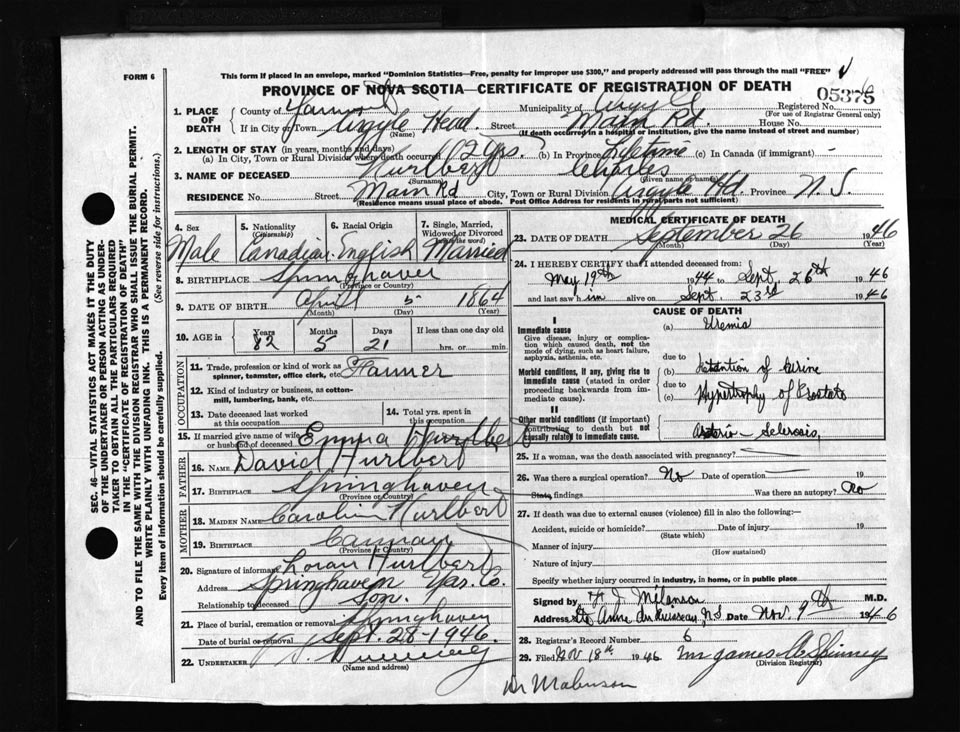 FORM 6
This form if placed in an envelope, marked "Dominion Statistics—Free, penalty for improper use $300," and properly addressed will pass through the mail "FREE"
PROVINCE OF NOVA SCOTIA—CERTIFICATE OF REGISTRATION OF DEATH
05375
1. PLACE OF DEATH County of Yarmouth Municipality of Argyle Registered No.
(For use of Registrar General only)
If in City or Town Argyle Head Street Main Rd. House No.
(Name) (If death occurred in a hospital or institution, give the name instead of street and number)
2. LENGTH OF STAY (in years, months and days)
(a) In City, Town or Rural Division where death occurred 12 yrs. (b) In Province Lifetime (c) In Canada (if immigrant) —
3. NAME OF DECEASED Hurlbert Charles
(Surname) (Given name or names)
RESIDENCE No. Street Main Rd City, Town or Rural Division Argyle Hd. Province N. S.
(Residence means usual place of abode. Post Office Address for residents in rural parts not sufficient)
4. Sex Male
5. Nationality (Citizenship) Canadian
6. Racial Origin English
7. Single, Married, Widowed or Divorced (write the word) Married
8. BIRTHPLACE Springhaven
(Province or Country)
9. DATE OF BIRTH April 5 1864
(Month) (Day) (Year)
10. AGE in Years Months Days If less than one day old
82 5 21 hrs. or min.
OCCUPATION
11. Trade, profession or kind of work as spinner, teamster, office clerk, etc. Farmer
12. Kind of industry or business, as cotton-mill, lumbering, bank, etc.
13. Date deceased last worked at this occupation
14. Total yrs. spent in this occupation
15. If married give name of wife or husband of deceased Emma Hurlbert
FATHER
16. NAME David Hurlbert
17. BIRTHPLACE Springhaven
(Province or Country)
MOTHER
18. MAIDEN NAME Carolin Hurlbert
19. BIRTHPLACE
(Province or Country)
20. Signature of informant Loran Hurlbert
Address Springhaven Yar. Co.
Relationship to deceased Son.
21. Place of burial, cremation or removal Springhaven
Date of burial or removal Sept. 28-1946.
22. UNDERTAKER
(Name and address)
MEDICAL CERTIFICATE OF DEATH
23. DATE OF DEATH September 26 1946
(Month) (Day) (Year)
24. I HEREBY CERTIFY that I attended deceased from:
May 19th 1944 to Sept. 26th 1946
and last saw him alive on Sept. 23rd 1946
CAUSE OF DEATH
I
Immediate cause
Give disease, injury or complication which caused death, not the mode of dying, such as heart failure, asphyxia, asthenia, etc.
(a) Uremia
due to
Morbid conditions, if any, giving rise to immediate cause (stated in order proceeding backwards from immediate cause).
(b) Retention of Urine
due to
(c) Hypertrophy of Prostate
II
Other morbid conditions (if important) contributing to death but not causally related to immediate cause.
Arterio-Sclerosis,
25. If a woman, was the death associated with pregnancy?
26. Was there a surgical operation? No Date of operation — 19
State findings Was there an autopsy? No
27. If death was due to external causes (violence) fill in also the following:—
Accident, suicide or homicide? Date of injury 19
(State which)
Manner of injury
(How sustained)
Nature of injury
Specify whether injury occurred in industry, in home, or in public place
Signed by M.D.
Address Ste Anne du Ruisseau, N.S Date Nov. 9th 1946
28. Registrar's Record Number 6
29. Filed Nov 18th 1946 Mr James A Spinney
(Division Registrar)
SEC. 46—VITAL STATISTICS ACT MAKES IT THE DUTY
OF THE UNDERTAKER OR PERSON ACTING AS UNDERTAKER TO OBTAIN ALL THE PARTICULARS REQUIRED
IN THE "CERTIFICATE OF REGISTRATION OF DEATH"
AND TO FILE THE SAME WITH THE DIVISION REGISTRAR WHO SHALL ISSUE THE BURIAL PERMIT.
WRITE PLAINLY WITH UNFADING INK. THIS IS A PERMANENT RECORD.
Every item of information should be carefully supplied. (See reverse side for instructions.)